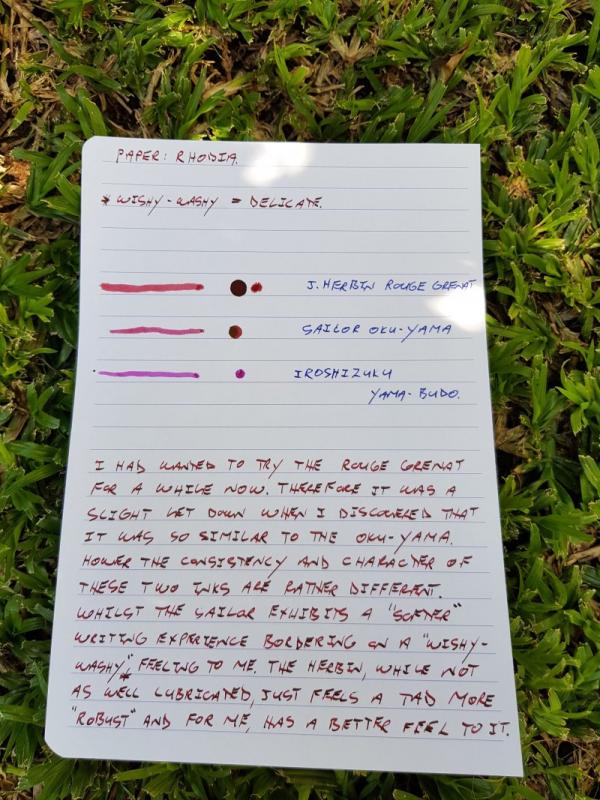 PAPER: RHODIA.
* WISHY-WASHY = DELICATE.
J. HERBIN ROUGE GRENAT
SAILOR OKU-YAMA
IROSHIZUKU
YAMA-BUDO.
I HAD WANTED TO TRY THE ROUGE GRENAT
FOR A WHILE NOW. THEREFORE IT WAS A
SLIGHT LET DOWN WHEN I DISCOVERED THAT
IT WAS SO SIMILAR TO THE OKU-YAMA.
HOWER THE CONSISTENCY AND CHARACTER OF
THESE TWO INKS ARE RATHER DIFFERENT.
WHILST THE SAILOR EXHIBITS A "SOFTER"
WRITING EXPERIENCE BORDERING ON A "WISHY-
WASHY"* FEELING TO ME. THE HERBIN, WHILE NOT
AS WELL LUBRICATED, JUST FEELS A TAD MORE
"ROBUST" AND FOR ME, HAS A BETTER FEEL TO IT.